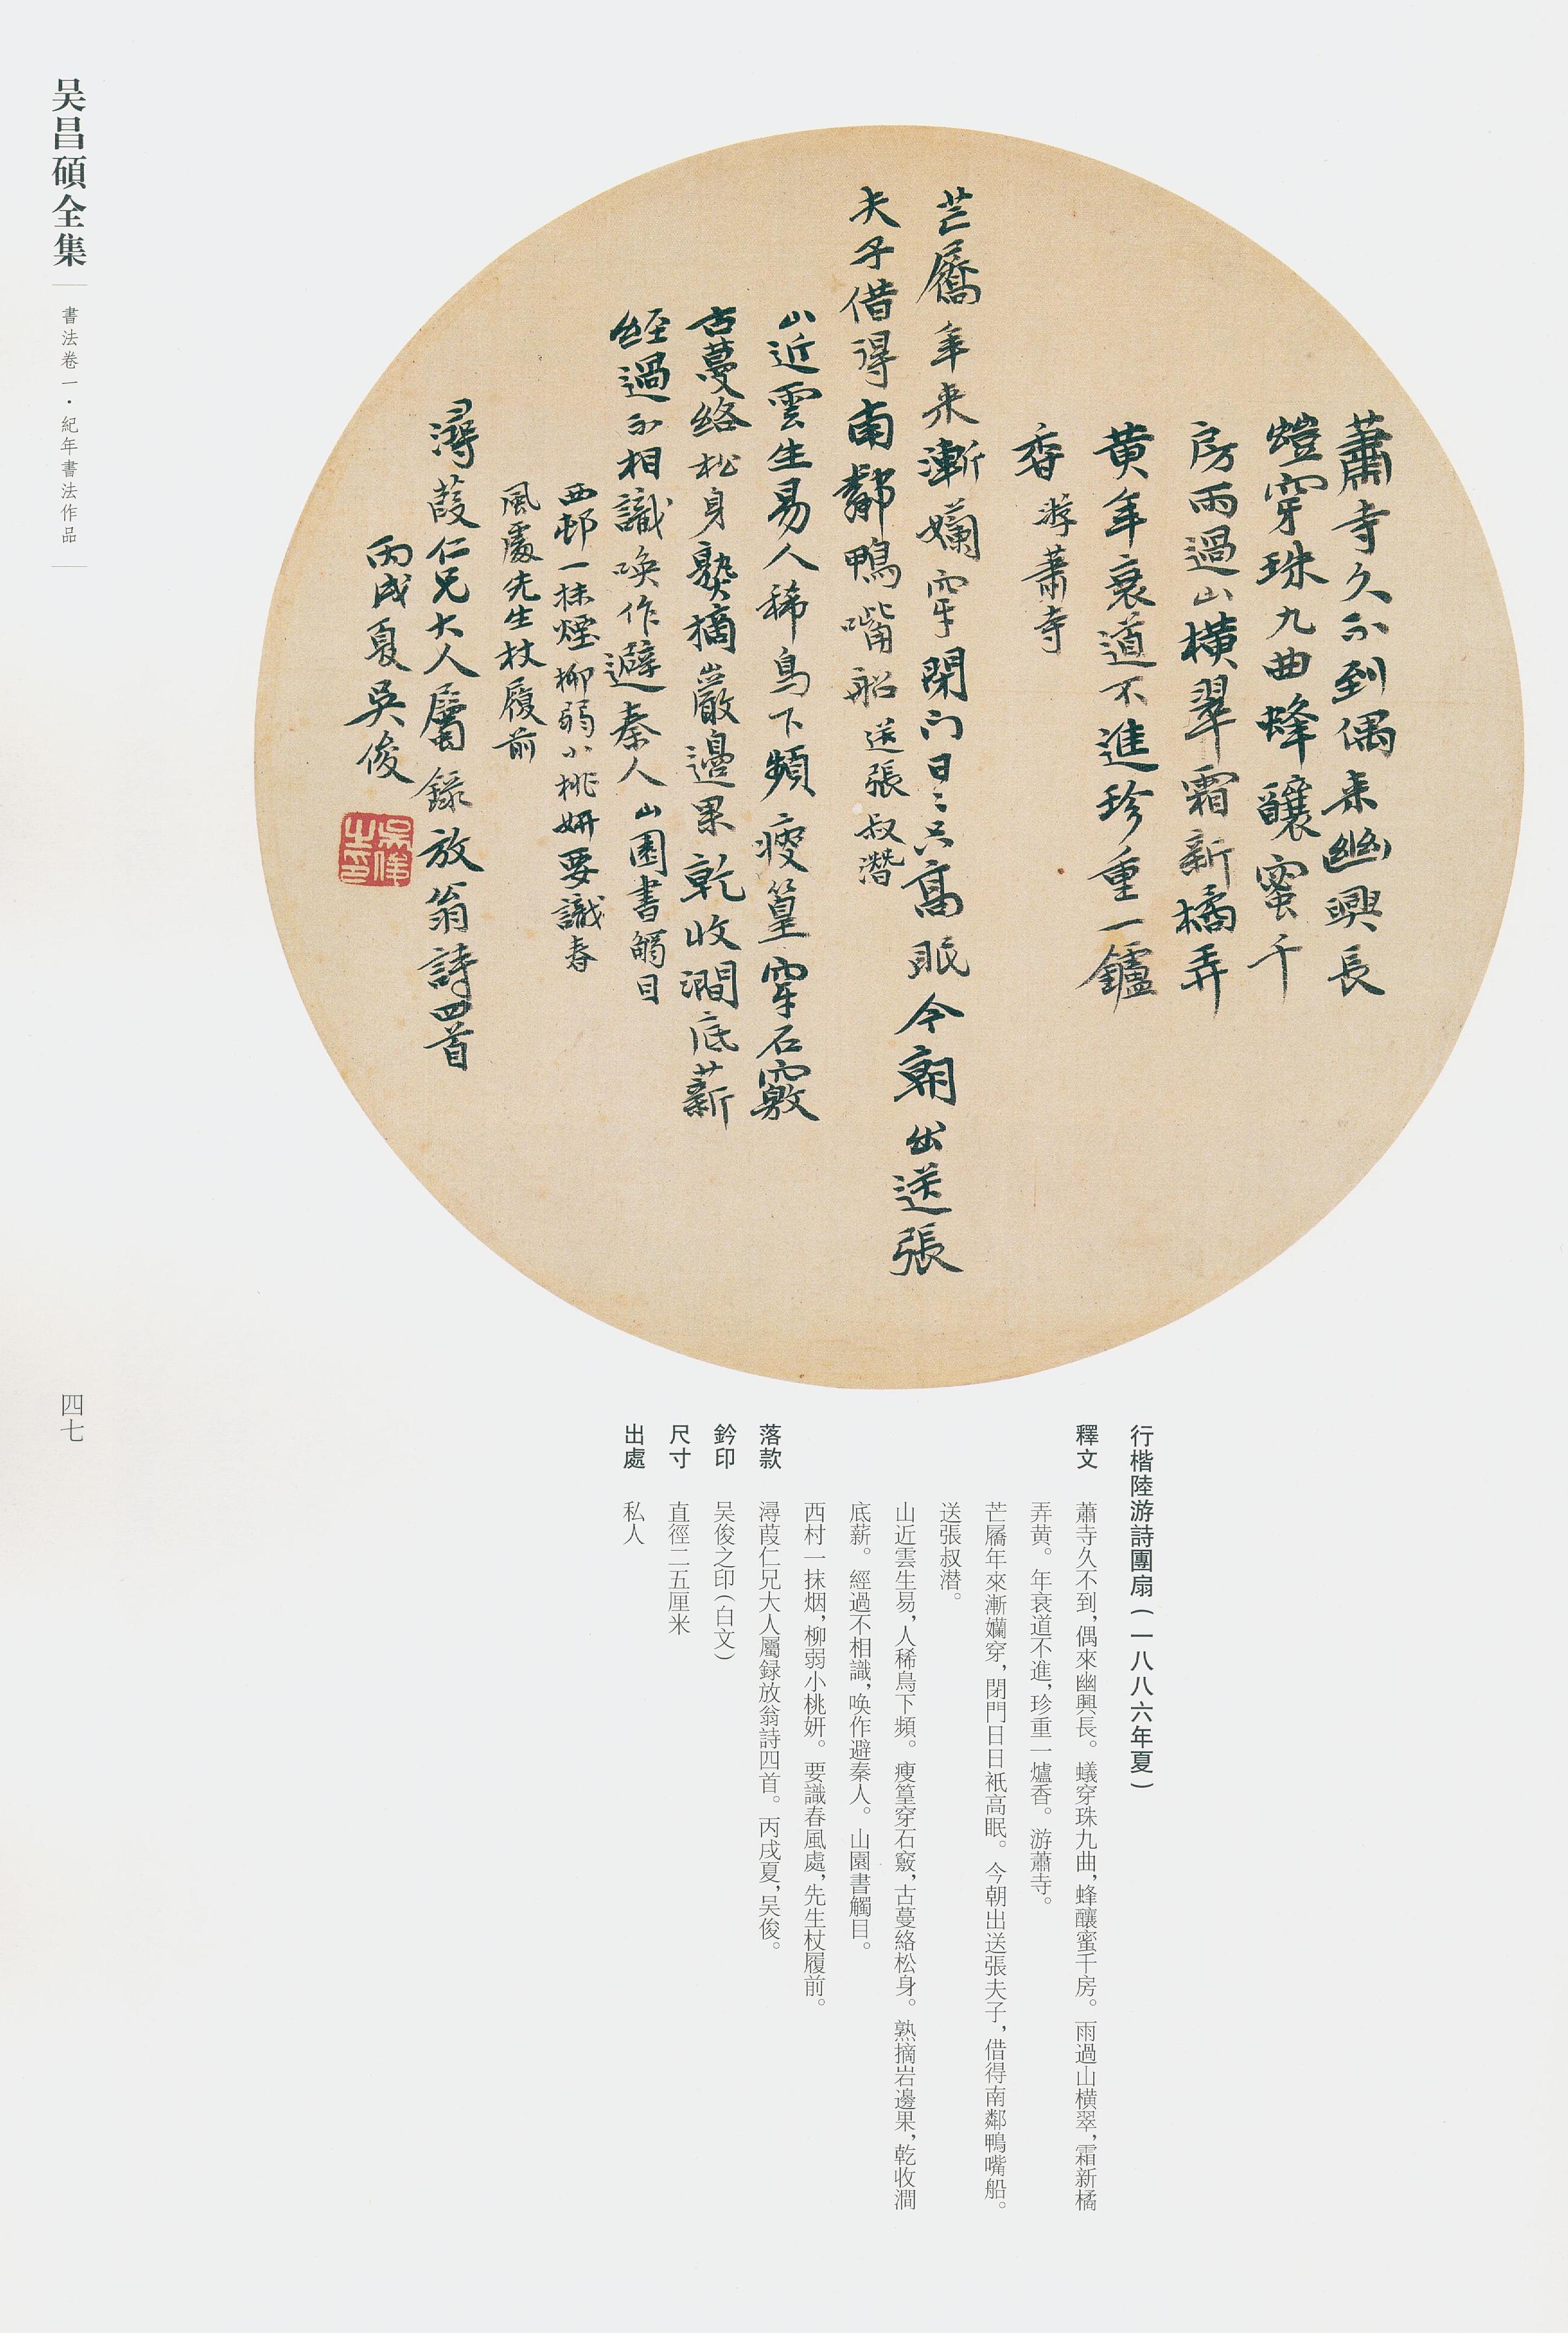 蕭寺久不到偶来幽興長
螘穿珠九曲蜂釀蜜千
房雨過山橫翠霜新橘弄
黄年衰道不進珍重一鑪
香游蕭寺
芒屩年来漸爛穿閉门日〻只高眠今朝出送張
夫子借得南鄰鴨嘴船送張叔潛
山近雲生易人稀鳥下頻瘦篁穿石竅
古蔓絡松身熟摘巖邊果乾收澗底薪
經過不相識喚作避秦人山園書觸目
西邨一抹煙柳弱小桃妍要識春
風處先生杖履前
潯葭仁兄大人屬錄放翁詩四首
丙戌夏吳俊
吳俊之印
行楷陸游詩團扇（一八八六年夏）
釋文 蕭寺久不到，偶來幽興長。蟻穿珠九曲，蜂釀蜜千房。雨過山橫翠，霜新橘
弄黄。年衰道不進，珍重一爐香。游蕭寺。
芒屩年來漸爛穿，閉門日日衹高眠。今朝出送張夫子，借得南鄰鴨嘴船。
送張叔潜。
山近雲生易，人稀鳥下頻。瘦篁穿石竅，古蔓絡松身。熟摘岩邊果，乾收澗
底薪。經過不相識，唤作避秦人。山園書觸目。
西村一抹烟，柳弱小桃妍。要識春風處，先生杖履前。
落款 潯葭仁兄大人屬録放翁詩四首。丙戌夏，吴俊。
鈐印 吴俊之印（白文）
尺寸 直徑二五厘米
出處 私人
吴昌碩全集
書法卷一·紀年書法作品
四七